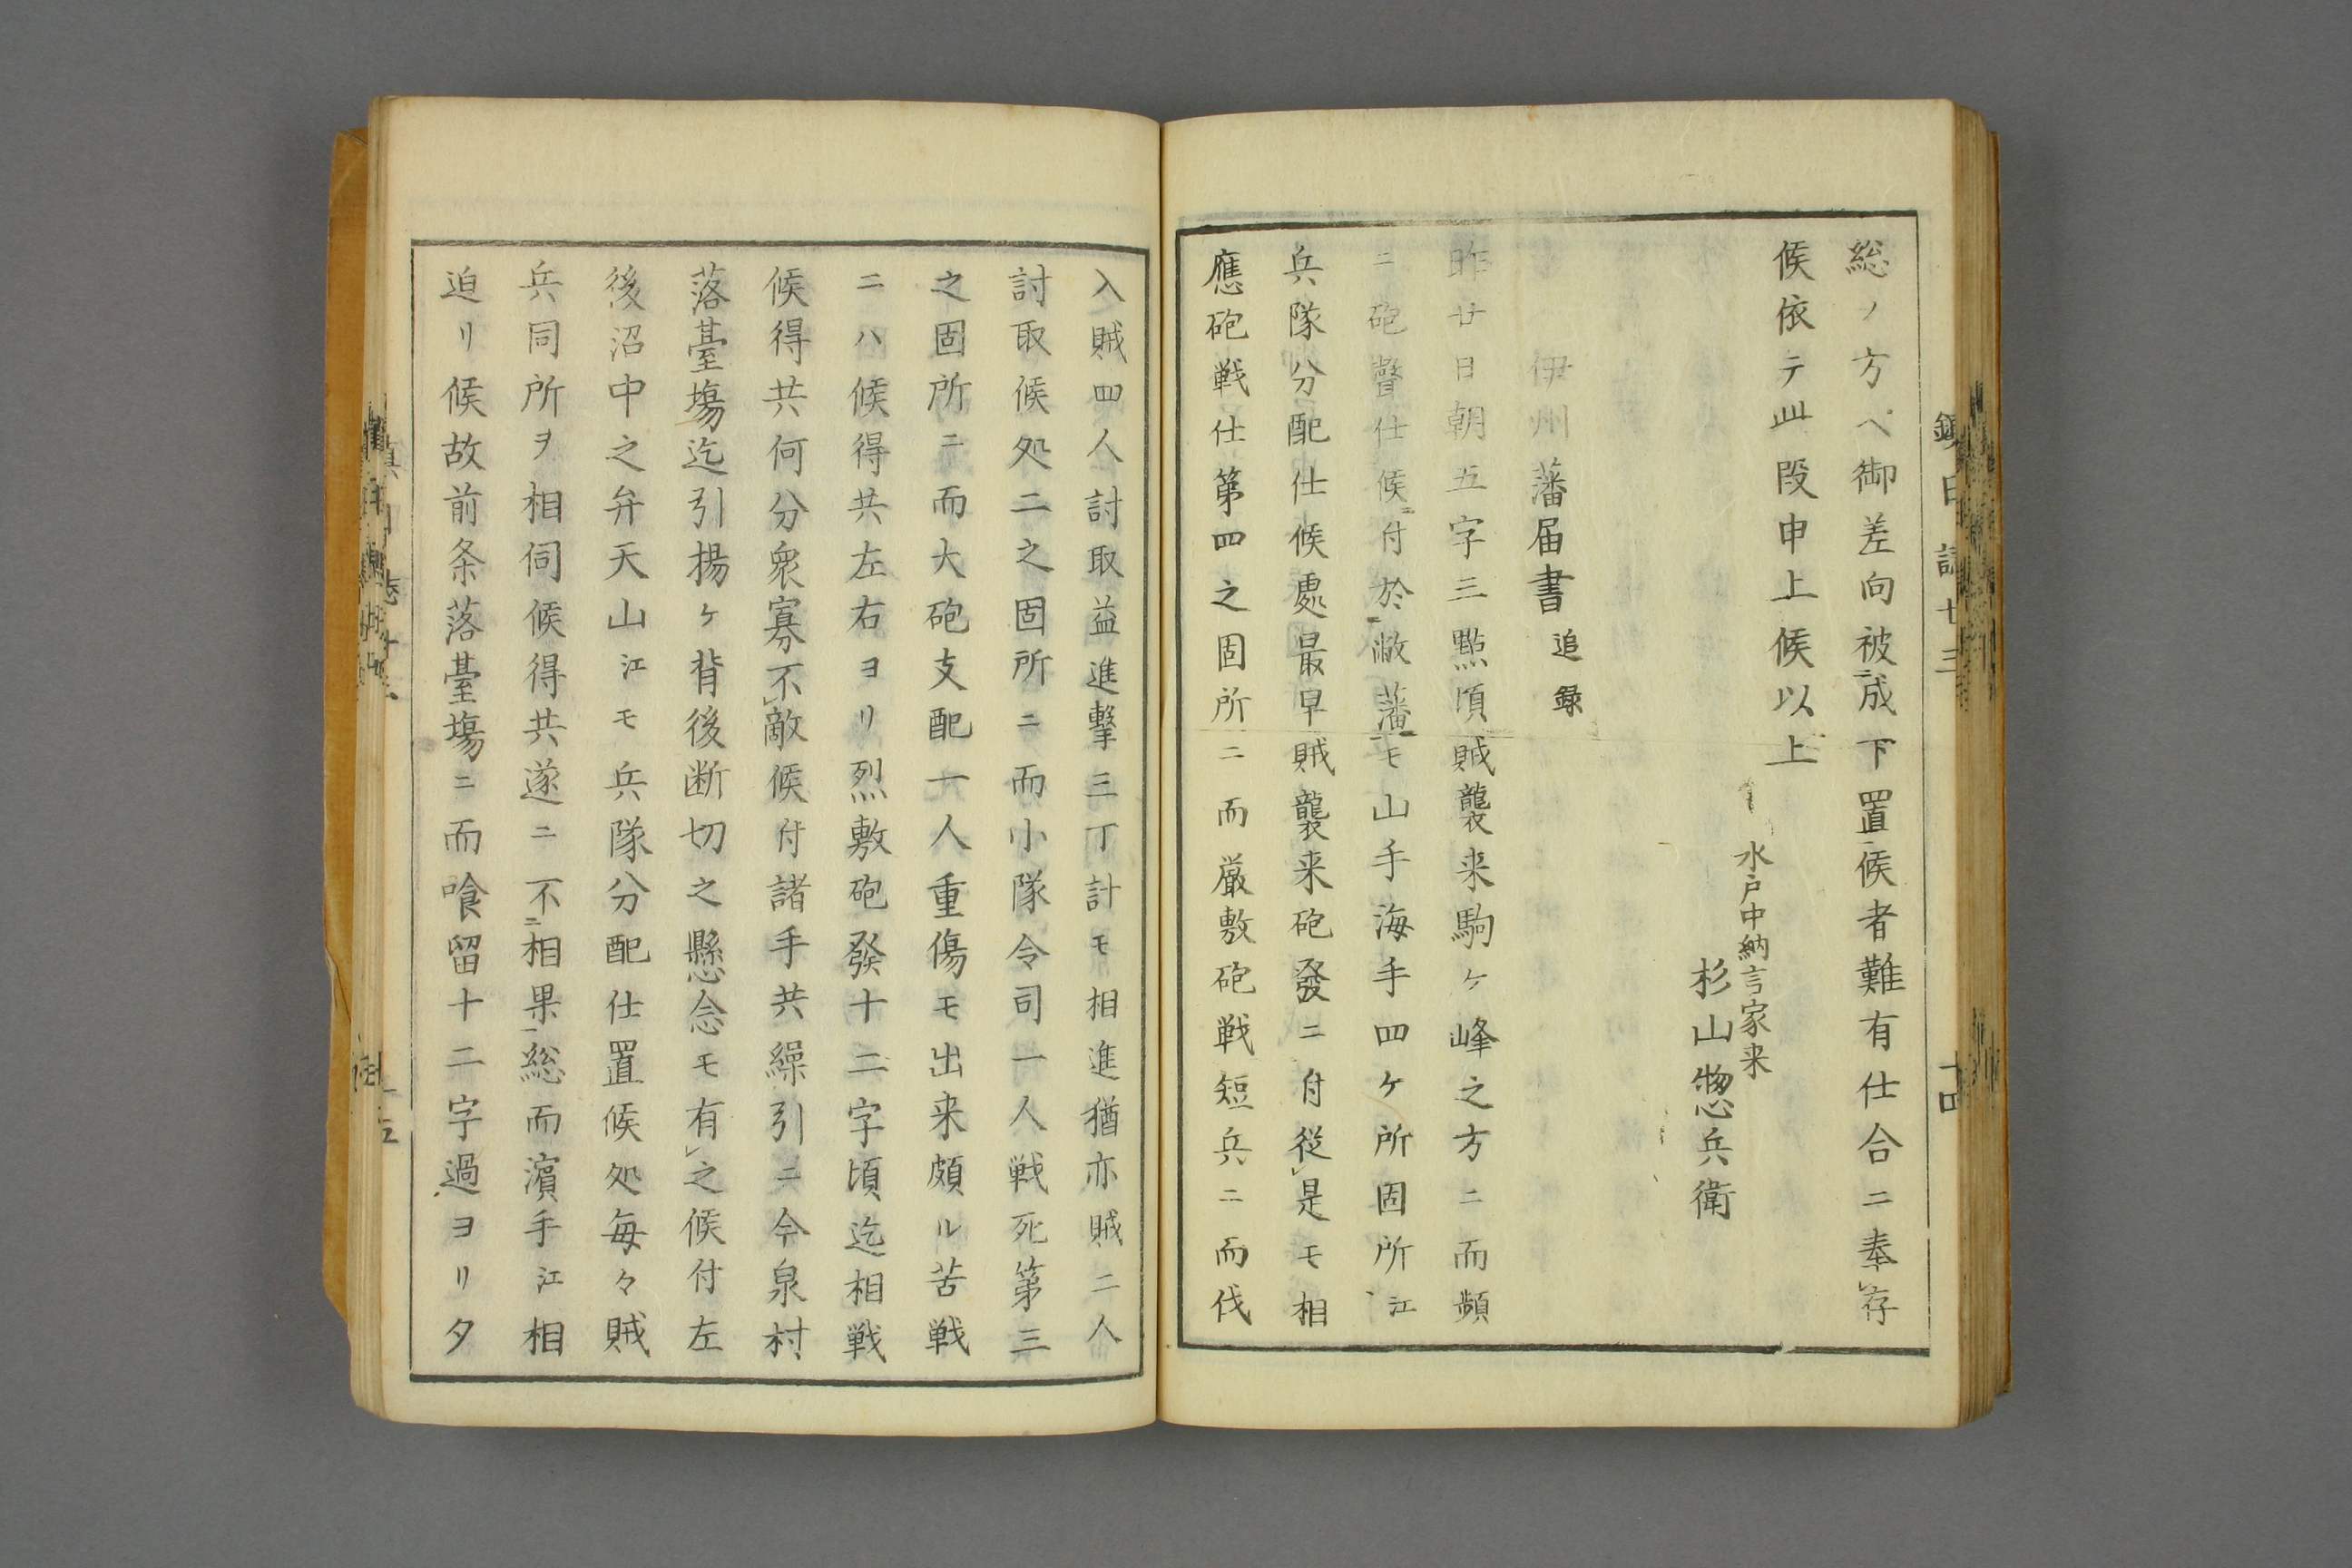 総ノ方ヘ御差向被㆓成下置㆒候者難有仕合ニ奉㆑存
候依テ此段申上候以上
水戸中納言家来
杉山惣兵衛
伊州藩届書 追録
昨廿日朝五字三點頃賊襲来駒ケ峰之方ニ而頻
ニ砲聲仕候ニ付於㆓敝藩㆒モ山手海手四ケ所固所江
兵隊分配仕候處最早賊襲来砲發ニ付従㆑是モ相
應砲戦仕第四之固所ニ而厳敷砲戦短兵ニ而伐
入賊四人討取益進撃三丁計モ相進猶亦賊二人
討取候処二之固所ニ而小隊令司一人戦死第三
之固所ニ而大砲支配一人重傷モ出来頗ル苦戦
ニハ候得共左右ヨリ烈敷砲發十二字頃迄相戦
候得共何分衆寡不㆑敵候付諸手共繰引ニ今泉村
落臺塲迄引揚ケ背後断切之懸念モ有㆑之候付左
後沼中之弁天山江モ兵隊分配仕置候処毎々賊
兵同所ヲ相伺候得共遂ニ不㆓相果㆒総而濵手江相
迫リ候故前条落臺塲ニ而喰留十二字過ヨリタ